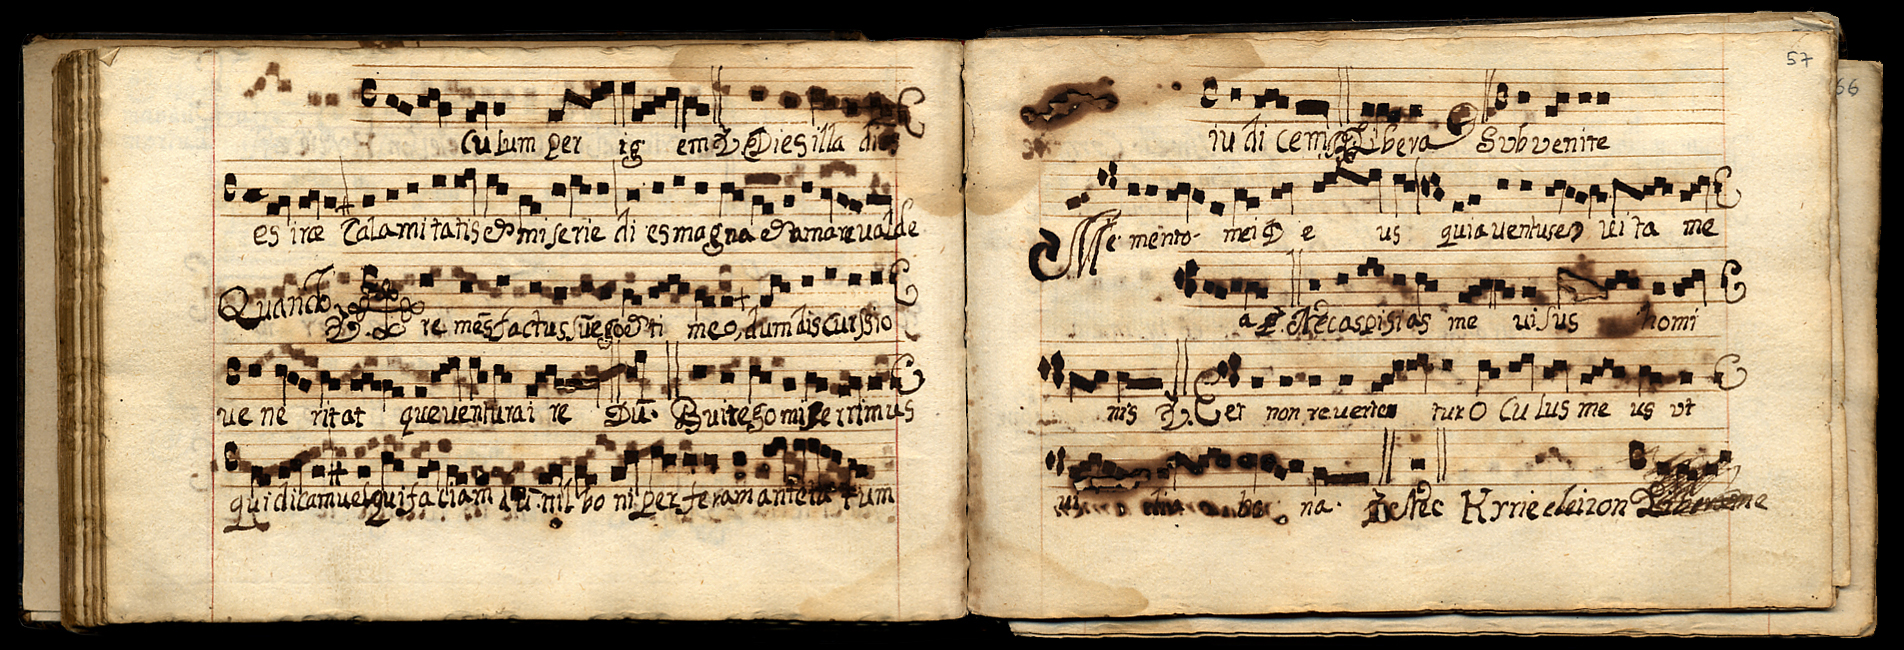 culum per ig em ℣. Dies illa di
es iræ Calamitatis & miserie di es magna & amara valde
Quando ℣. Tre mēs factus sū ego & ti meo, dum discursio
ve ne ritat que ventura i re Dū. Quit ego miserrimus
quid dicam vel quid faciam dū. nil bo ni perferam ante ta tum
57
66
iu di cem Libera Subvenite
Me mento mei De us quia ventus e vi ta me
a ℣. Nec aspisias me visus homi
nis ℣. Et non revertetur Oculus me us vt
vi de bo na. ℟ Nec Kyrie eleizon